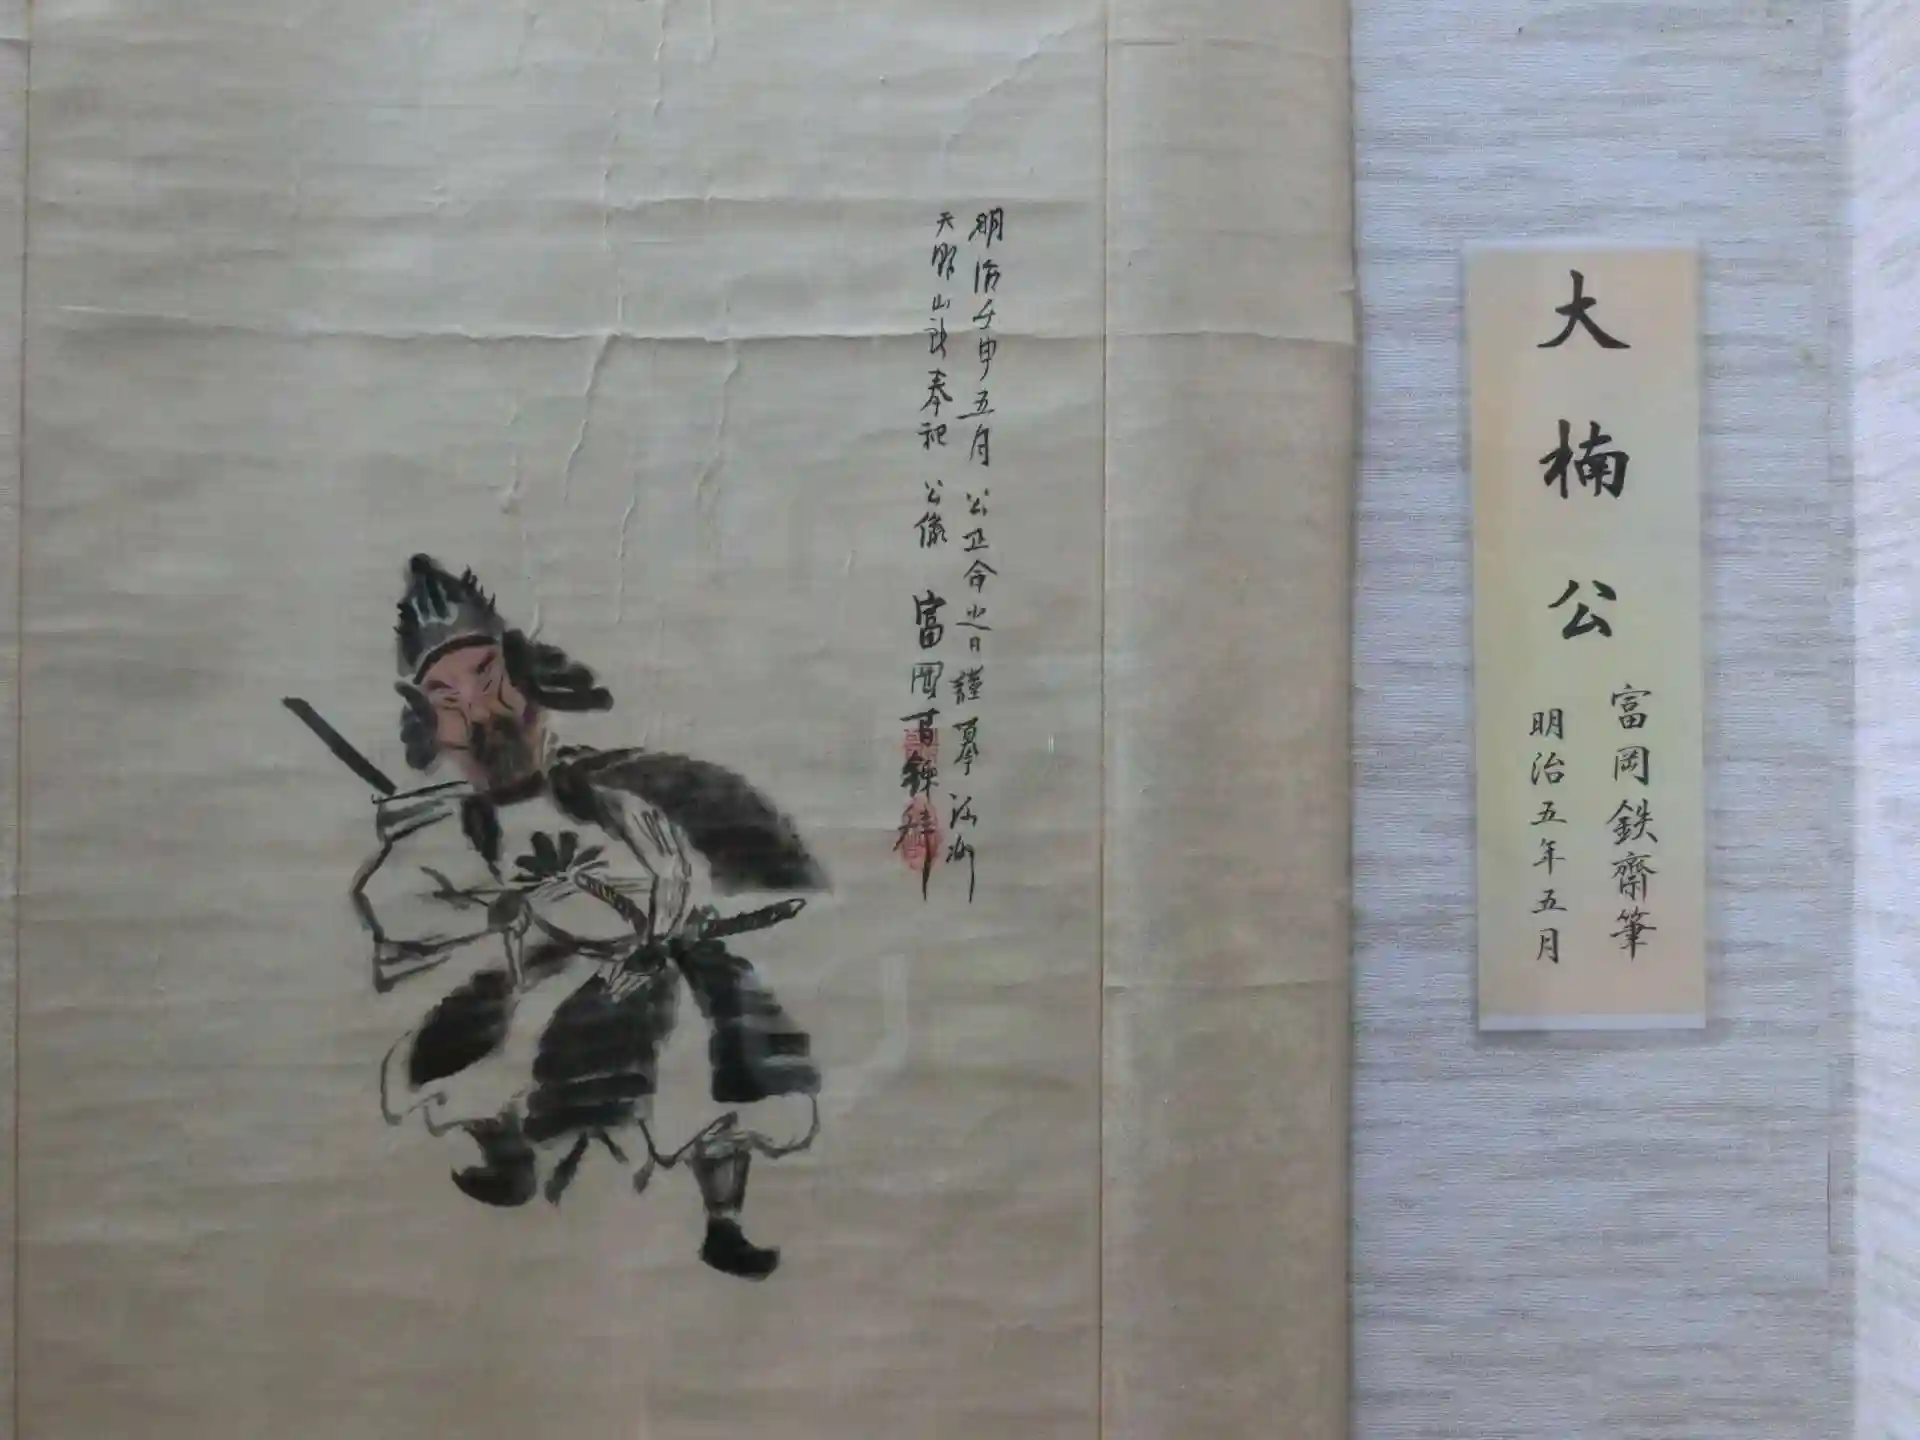 大楠公
富岡鉄齋筆
明治五年五月
明治壬申五月 公正命之日謹摹河州
天野山所奉祀 公像 富岡百錬拜